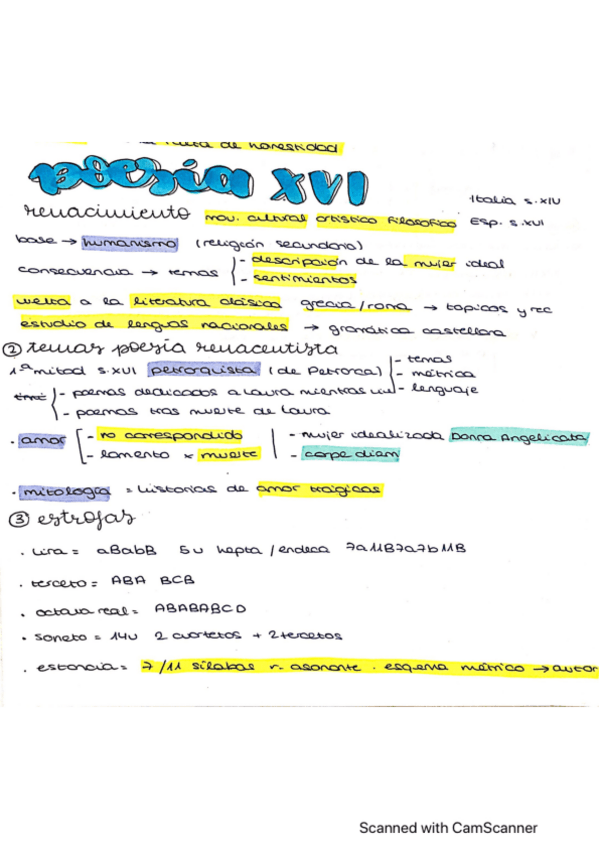 falta de honestidad
poesia XVI
Italia s.XIV
renacimiento mov. cultural artístico filosófico Esp. s.XVI
base → humanismo (religión secundaria)
consecuencia → temas - descripción de la mujer ideal
- sentimientos
vuelta a la literatura clásica grecia/roma → topicos y rec
estudio de lenguas nacionales → gramática castellana
② temas poesía renacentista
1ª mitad s.XVI petrarquista (de Petrarca) - temas
- métrica
- lenguaje
- poemas dedicados a Laura mientras
- poemas tras muerte de Laura
· amor - no correspondido - mujer idealizada Donna Angelicata
- lamento x muerte - carpe diem
· mitología = historias de amor trágicas
③ estrofas
· lira = aBabB 5v hepta/endeca 7a11B7a7b11B
· terceto = ABA BCB
· octava real = ABABABCD
· soneto = 14v 2 cuartetos + 2 tercetos
· estancia = 7/11 sílabas r. asonante. esquema métrico → autor
Scanned with CamScanner